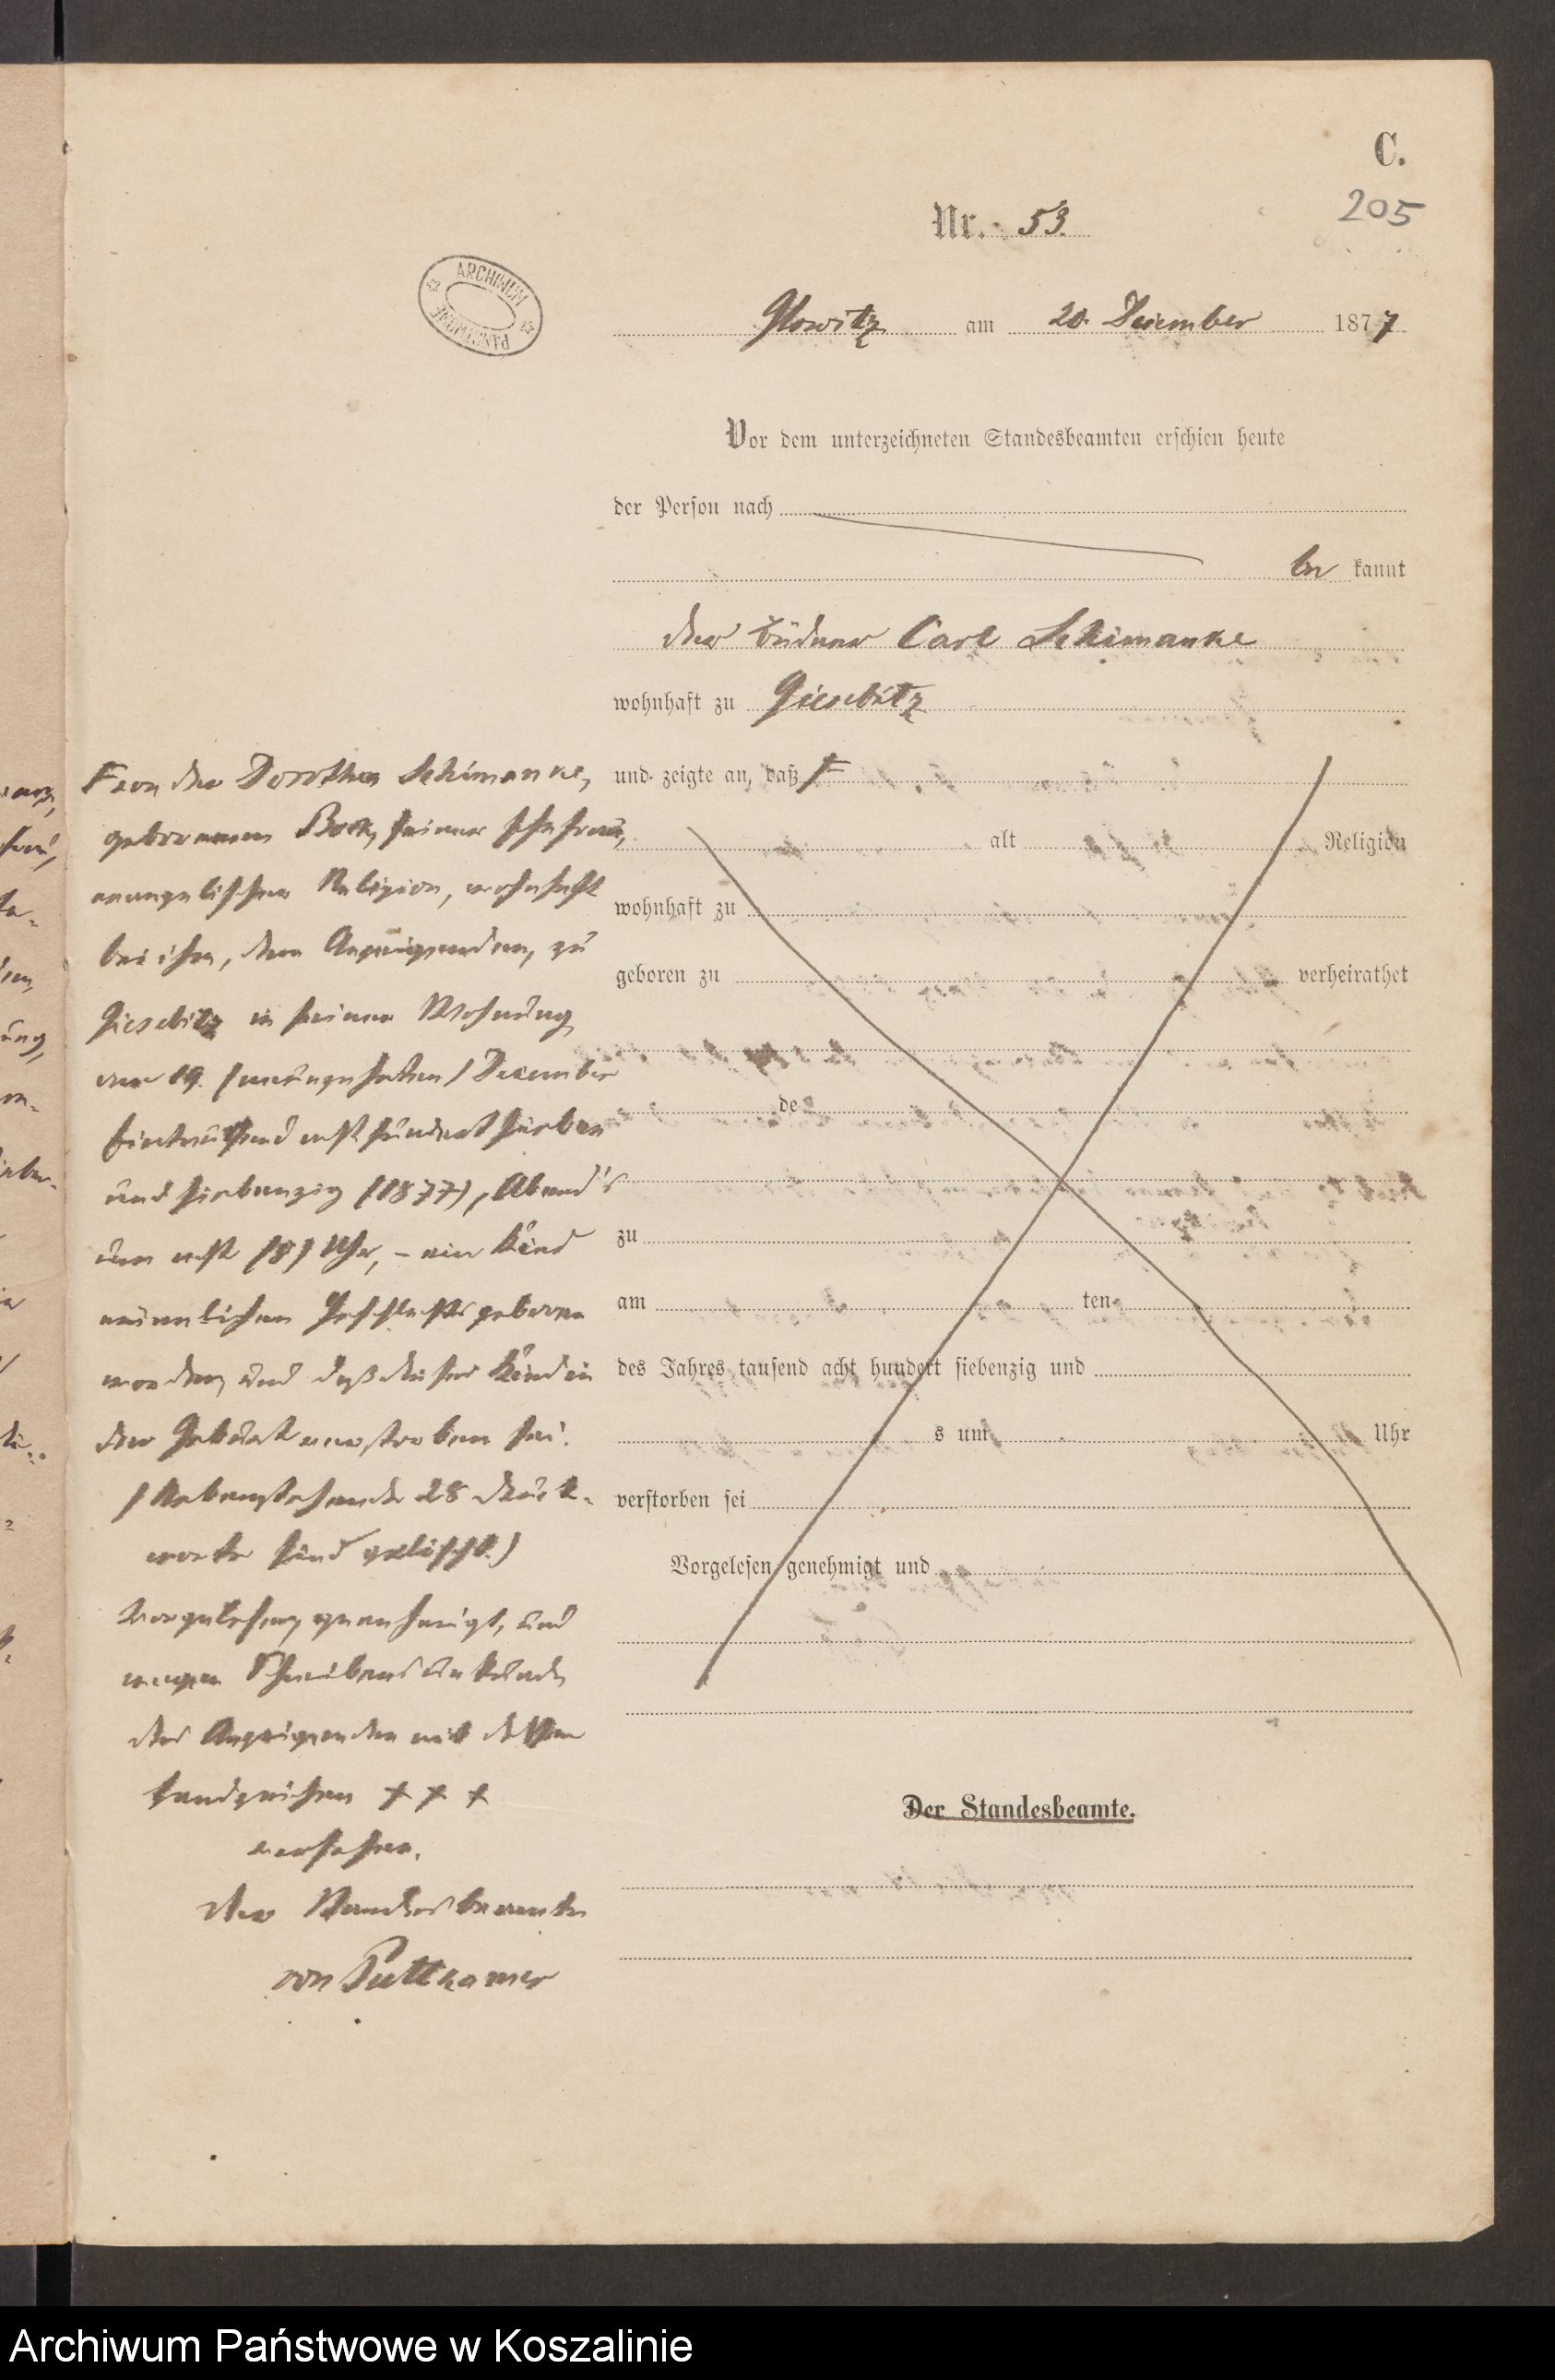 C.
205
Nr. 53.
ARCHIWUM
PAŃSTWOWE
Glowitz am 20. Dezember 1877
Vor dem unterzeichneten Standesbeamten erschien heute
der Person nach
be kannt
der Büdner Carl Schimanke
wohnhaft zu Giesebitz
und zeigte an, daß F
alt Religion
wohnhaft zu
geboren zu verheirathet
de
zu
am ten
des Jahres tausend acht hundert siebenzig und
s um Uhr
verstorben sei
Vorgelesen genehmigt und
Der Standesbeamte.
F von der Dorothea Schimanke,
geborenen Bock, seiner Ehefrau,
evangelischer Religion, wohnhaft
bei ihm, dem Anzeigenden, zu
Giesebitz in seiner Wohnung
am 19. (neunzehnten) Dezember
Eintausend acht hundert sieben
und siebenzig (1877), Abend's
um acht (8) Uhr, – ein Kind
männlichen Geschlechts geboren
worden, und daß dieses Kind in
der Geburt verstorben sei.
(Nebenstehende 28 Druck-
worte sind gelöscht.)
Vorgelesen, genehmigt, und
wegen Schreibensunkunde
des Anzeigenden mit dessen
Handzeichen + + +
versehen.
Der Standesbeamte
von Puttkamer
Archiwum Państwowe w Koszalinie